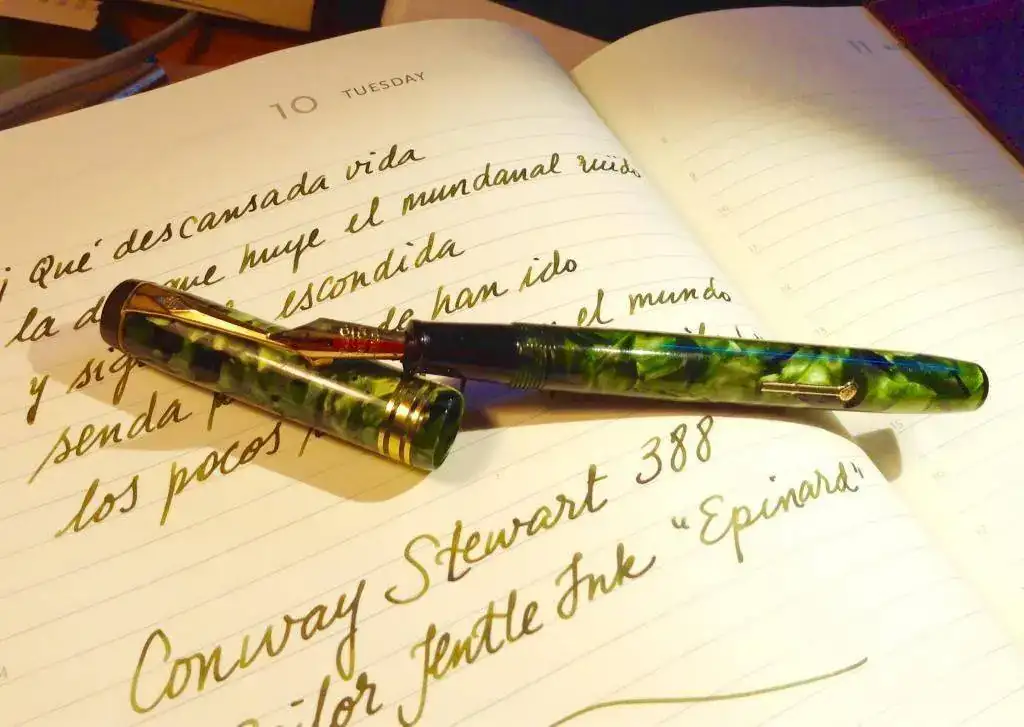 10 TUESDAY
11
¡Qué descansada vida
la que huye el mundanal ruïdo
y escondida
senda han ido
los pocos el mundo
Conway Stewart 388
Sailor Jentle Ink "Epinard"